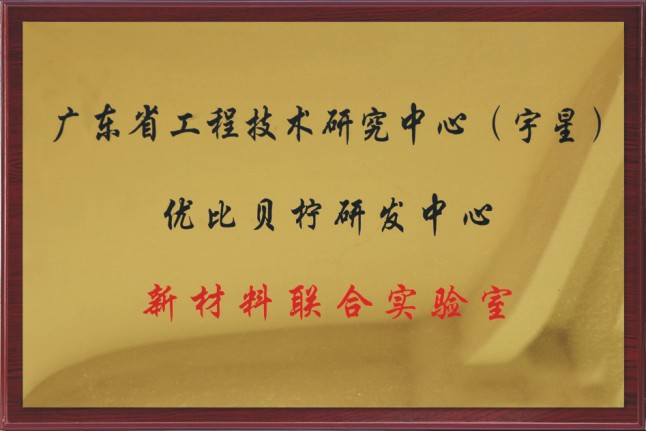 广东省工程技术研究中心（宇星）
优比贝柠研发中心
新材料联合实验室